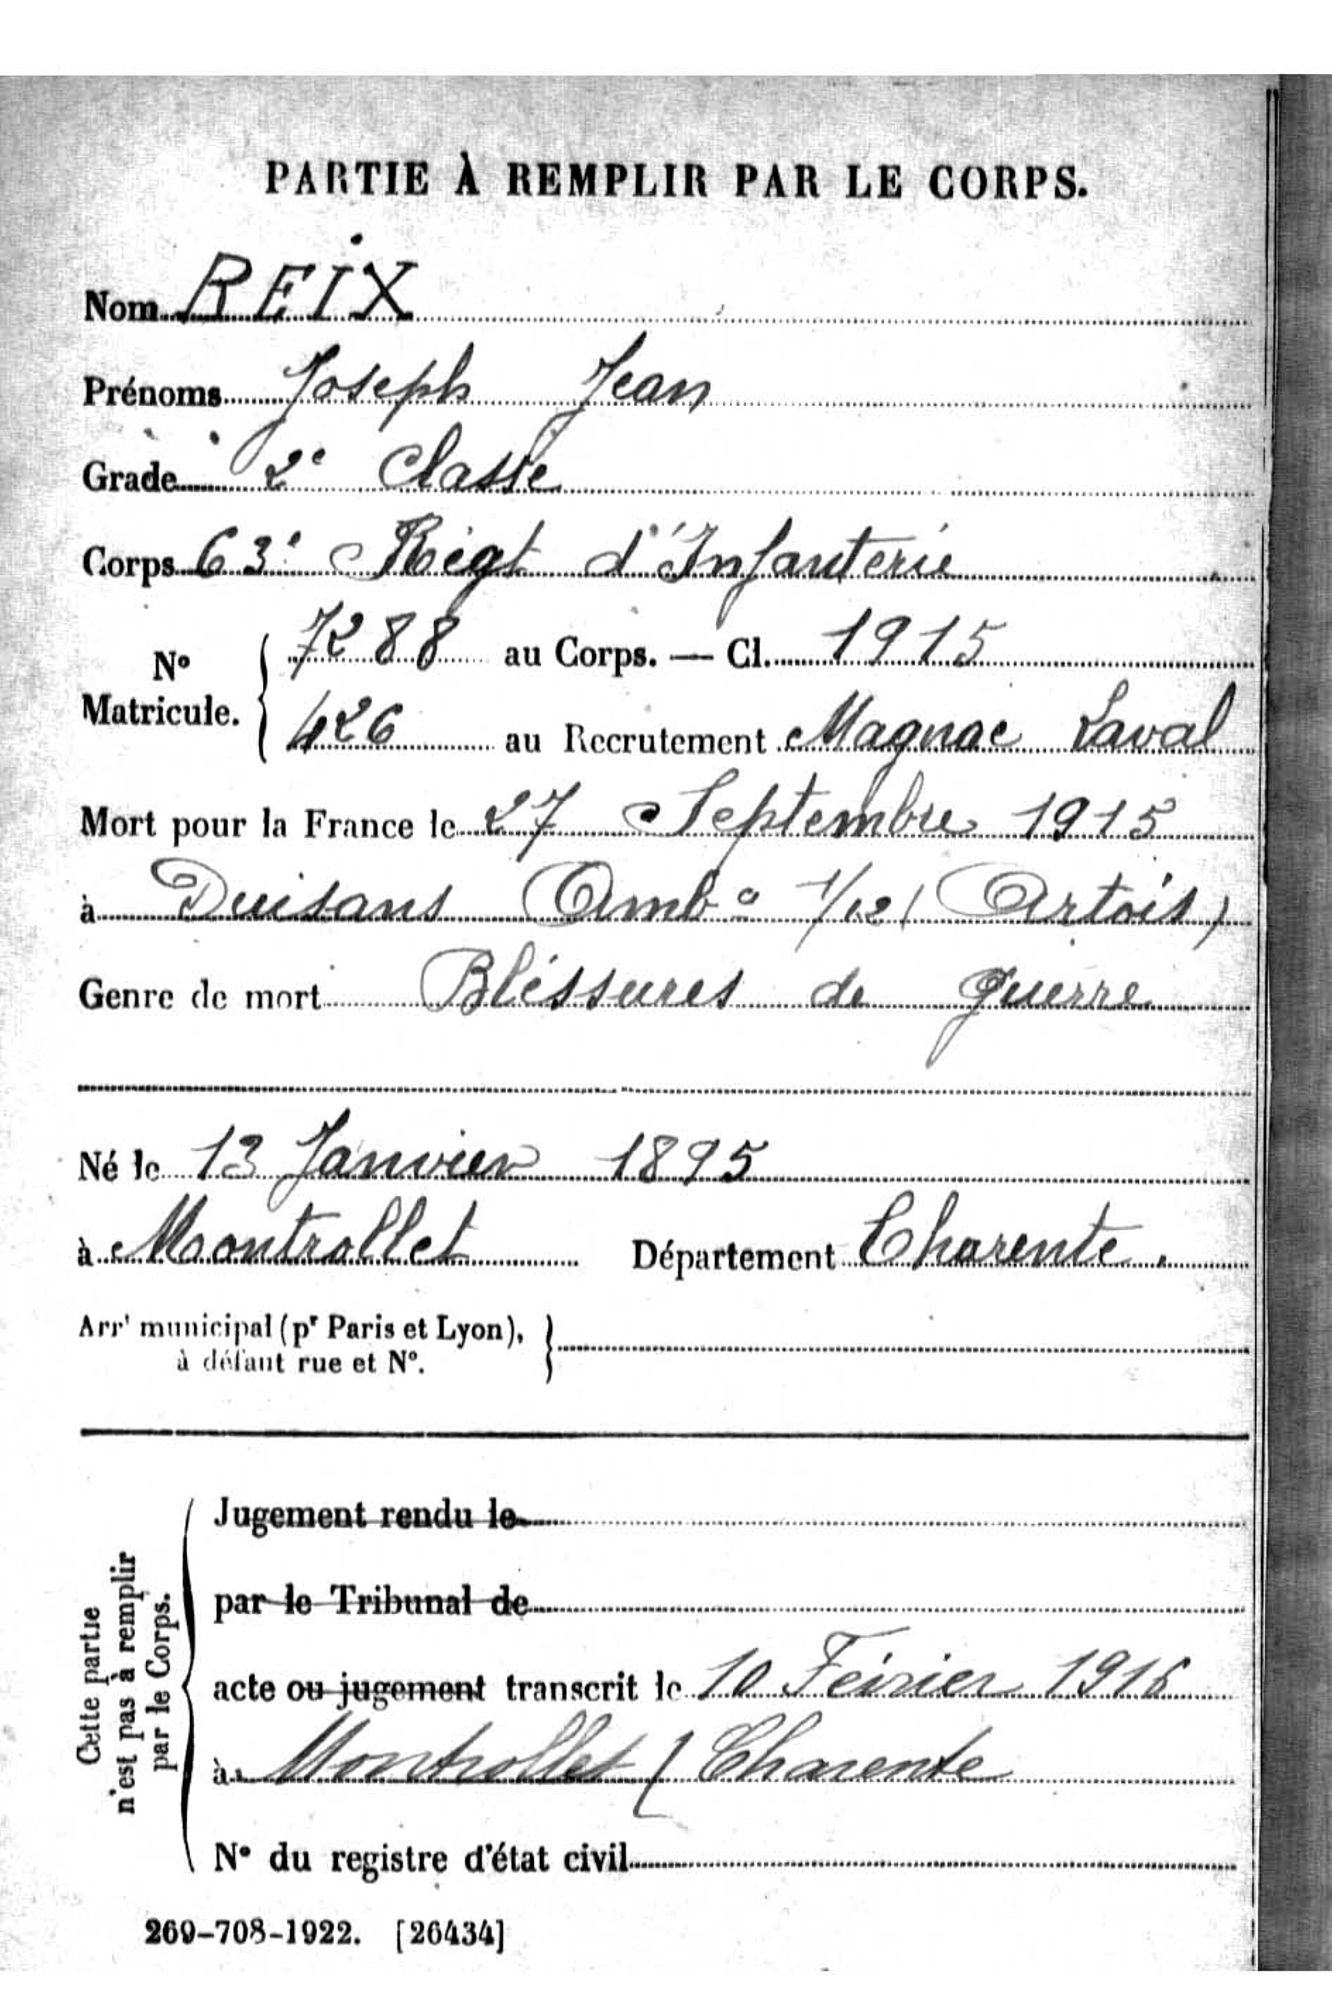 PARTIE À REMPLIR PAR LE CORPS.
Nom REIX
Prénoms Joseph Jean
Grade 2e Classe
Corps 63e Régt d'Infanterie
N° Matricule. { 7288 au Corps. — Cl. 1915
426 au Recrutement Magnac Laval
Mort pour la France le 27 Septembre 1915
à Duisans Ambce 1/12 (Artois)
Genre de mort Bléssures de guerre
Né le 13 Janvier 1895
à Montrollet Département Charente.
Arrt municipal (pr Paris et Lyon), }
à défaut rue et N°.
Cette partie
n'est pas à remplir
par le Corps.
Jugement rendu le
par le Tribunal de
acte ou jugement transcrit le 10 Février 1916
à Montrollet (Charente
N° du registre d'état civil
269-708-1922. [26434]